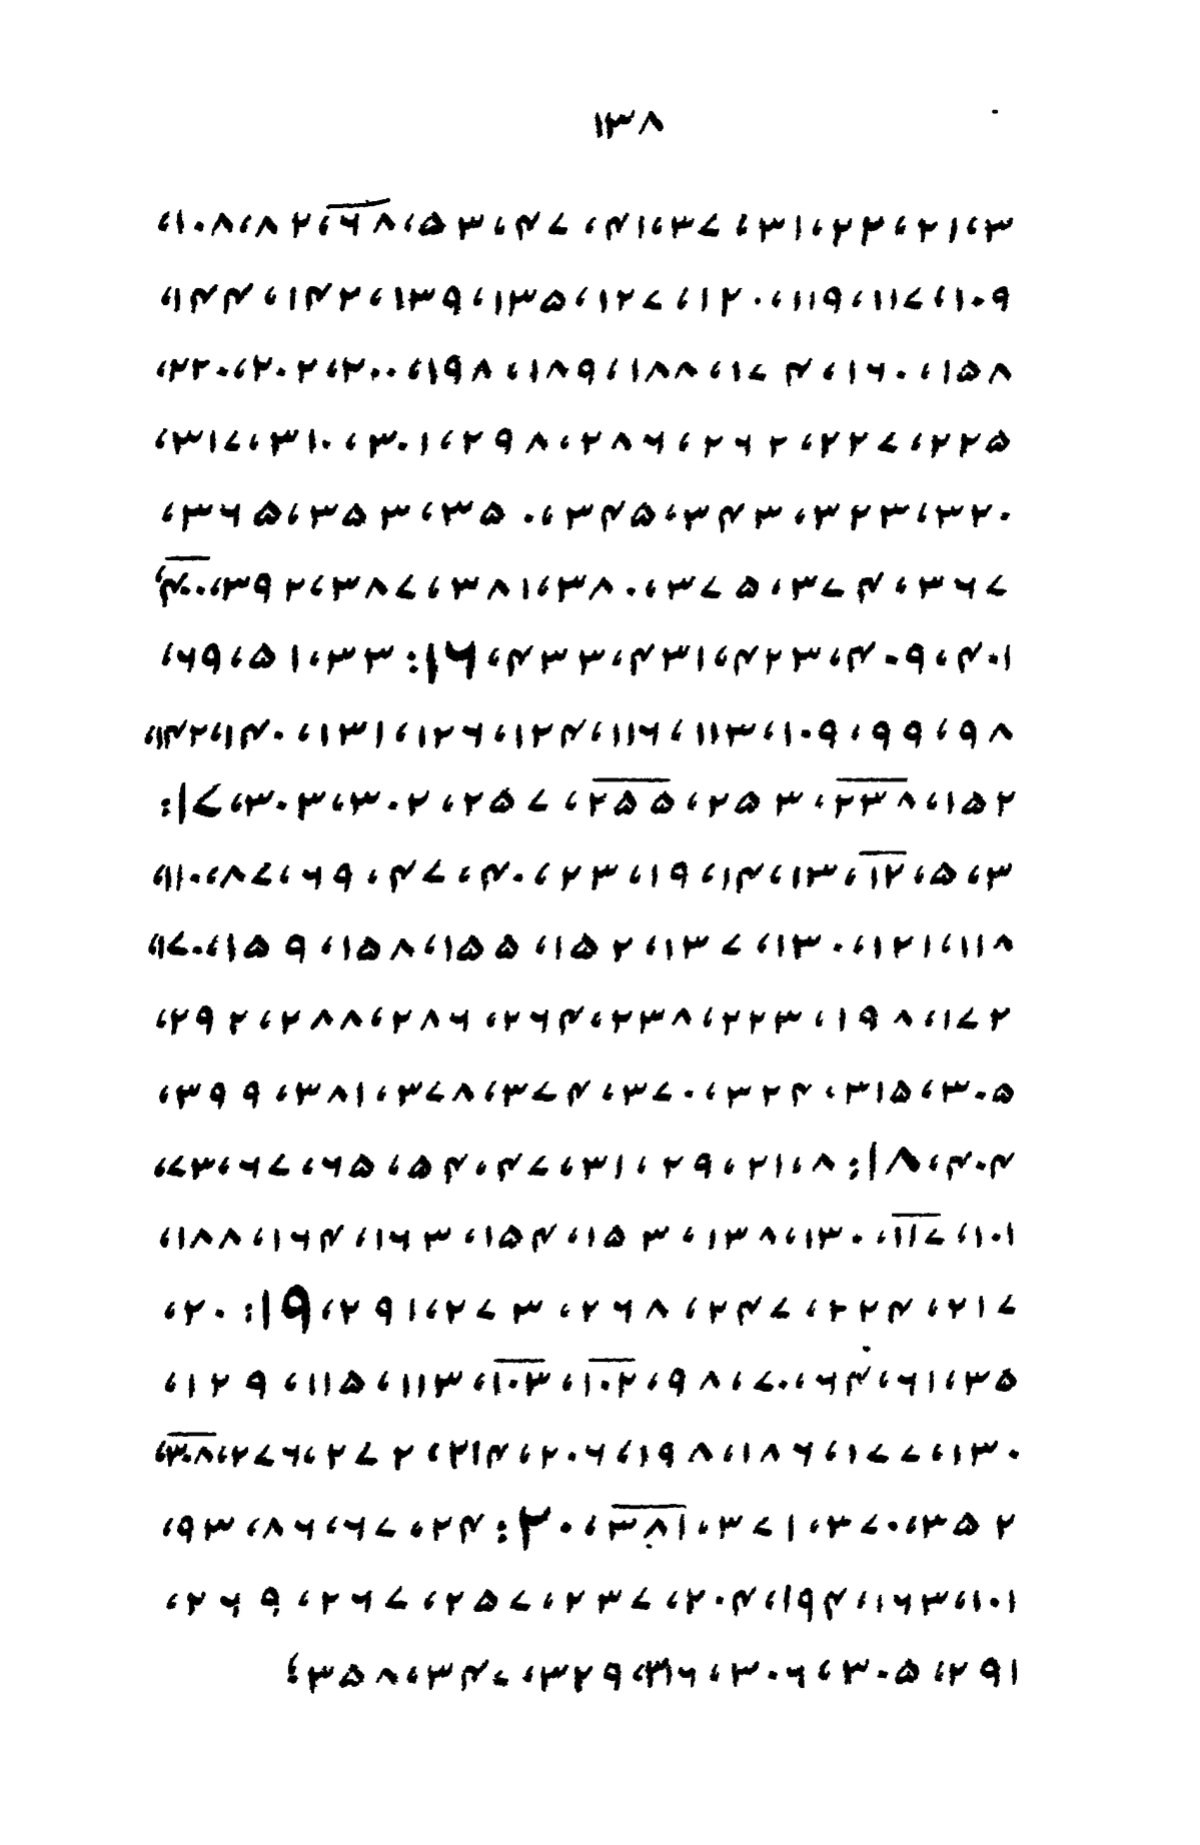 ۱۳۸
۳، ۲۱، ۲۲، ۳۱، ۳۷، ۴۱، ۴۷، ۵۳، ۶۸، ۸۲، ۱۰۸،
۱۰۹، ۱۱۷، ۱۱۹، ۱۲۰، ۱۲۷، ۱۳۵، ۱۳۹، ۱۴۲، ۱۴۴،
۱۵۸، ۱۶۰، ۱۷۴، ۱۸۸، ۱۸۹، ۱۹۸، ۲۰۰، ۲۰۲، ۲۲۰،
۲۲۵، ۲۲۷، ۲۶۲، ۲۸۶، ۲۹۸، ۳۰۱، ۳۱۰، ۳۱۷،
۳۲۰، ۳۲۳، ۳۴۳، ۳۴۵، ۳۵۰، ۳۵۳، ۳۶۵،
۳۶۷، ۳۷۴، ۳۷۵، ۳۸۰، ۳۸۱، ۳۸۷، ۳۹۲، ۴۰۰،
۴۰۱، ۴۰۹، ۴۲۳، ۴۳۱، ۴۳۳، ۱۶: ۳۳، ۵۱، ۶۹،
۹۸، ۹۹، ۱۰۹، ۱۱۳، ۱۱۶، ۱۲۴، ۱۲۶، ۱۳۱، ۱۴۰، ۱۴۲،
۱۵۲، ۲۳۸، ۲۵۳، ۲۵۵، ۲۵۷، ۳۰۲، ۳۰۳، ۱۷:
۳، ۵، ۱۲، ۱۳، ۱۴، ۱۹، ۲۳، ۴۰، ۴۷، ۶۹، ۸۷، ۱۱۰،
۱۱۸، ۱۲۱، ۱۳۰، ۱۳۷، ۱۵۲، ۱۵۵، ۱۵۸، ۱۵۹، ۱۷۰،
۱۷۲، ۱۹۸، ۲۲۳، ۲۳۸، ۲۶۴، ۲۸۶، ۲۸۸، ۲۹۲،
۳۰۵، ۳۱۵، ۳۲۴، ۳۷۰، ۳۷۴، ۳۷۸، ۳۸۱، ۳۹۹،
۴۰۴، ۱۸: ۸، ۲۱، ۲۹، ۳۱، ۴۷، ۵۴، ۶۵، ۶۷، ۷۳،
۱۰۱، ۱۱۷، ۱۳۰، ۱۳۸، ۱۵۳، ۱۵۴، ۱۶۳، ۱۶۴، ۱۸۸،
۲۱۷، ۲۲۴، ۲۴۷، ۲۶۸، ۲۷۳، ۲۹۱، ۱۹: ۲۰،
۳۵، ۶۱، ۶۴، ۷۰، ۹۸، ۱۰۲، ۱۰۳، ۱۱۳، ۱۱۵، ۱۲۹،
۱۳۰، ۱۷۷، ۱۸۶، ۱۹۸، ۲۰۶، ۲۱۴، ۲۷۲، ۲۷۶، ۳۰۸،
۳۵۲، ۳۷۰، ۳۷۱، ۳۸۱، ۲۰: ۲۴، ۶۷، ۸۶، ۹۳،
۱۰۱، ۱۶۳، ۱۹۴، ۲۰۴، ۲۳۷، ۲۵۷، ۲۶۷، ۲۶۹،
۲۹۱، ۳۰۵، ۳۰۶، ۳۱۶، ۳۲۹، ۳۴۷، ۳۵۸؛